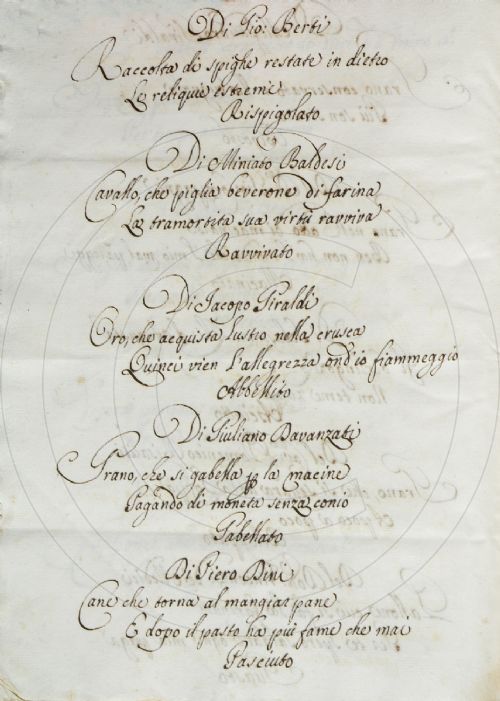 Di Gio: Berti
Raccolta di spighe restate in dietro
Le reliquie estreme
Rispigolato
Di Miniato Baldesi
Cavallo, che piglia beverone di farina
La tramortita sua virtù ravviva
Ravvivato
Di Jacopo Giraldi
Oro, che acquista lustro nella crusca
Quinci vien l'allegrezza ond'io fiammeggio
Abbellito
Di Giuliano Davanzati
Grano, che si gabella p la macine
Pagando di moneta senza conio
Gabellato
Di Piero Dini
Cane che torna al mangiar pane
E dopo il pasto ha più fame che mai
Pasciuto